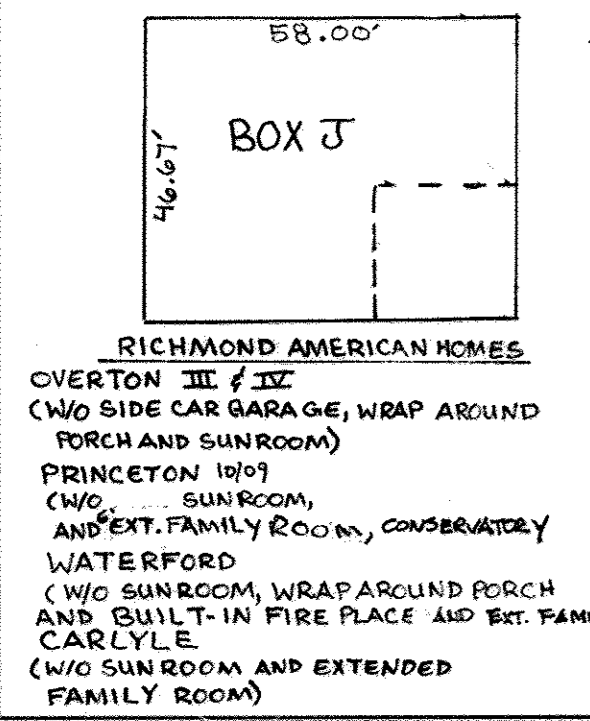 58.00'
BOX J
46.67'
RICHMOND AMERICAN HOMES
OVERTON III & IV
(W/O SIDE CAR GARAGE, WRAP AROUND
PORCH AND SUNROOM)
PRINCETON 10/09
(W/O SUNROOM,
AND 6' EXT. FAMILY ROOM, CONSERVATORY
WATERFORD
(W/O SUNROOM, WRAP AROUND PORCH
AND BUILT-IN FIRE PLACE AND EXT. FAMI
CARLYLE
(W/O SUNROOM AND EXTENDED
FAMILY ROOM)